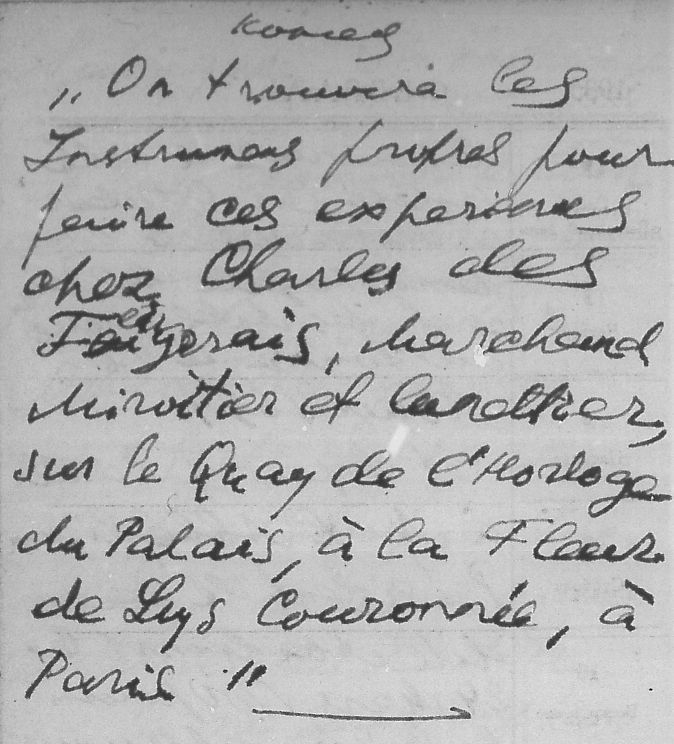 koniec
„On trouvera les
Instrumens propres pour
faire ces experiences
chez Charles des
Feugerais, Marchand
Miroitier et Lunettier,
sur le Quay de l'Horloge
du Palais, à la Fleur
de Lys Couronnée, à
Paris"